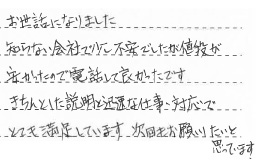 お世話になりました
知らない会社で少し不安でしたが値段が
安かたので電話して良かたです
きちんとした説明と迅速な仕事・対応で
とても満足しています 次回もお願いしたいと
思っています